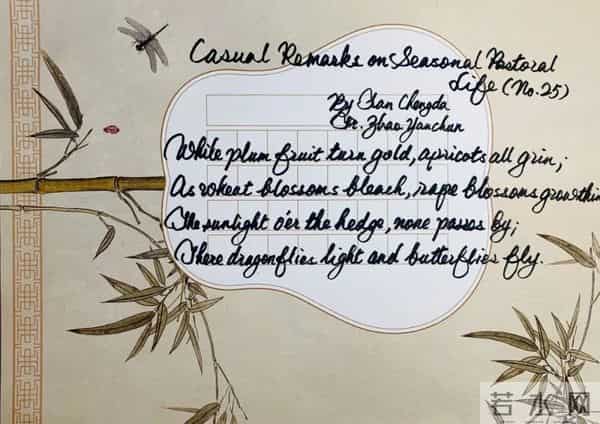 Casual Remarks on Seasonal Pastoral
Life (No.25)
By Chan Chengda
Tr. Zhao Yanchun
White plum fruit turn gold, apricots all grin;
As wheat blossoms bleach, rape blossoms grow thin
The sunlight o'er the hedge, none passes by;
There dragonflies light and butterflies fly.
若水网